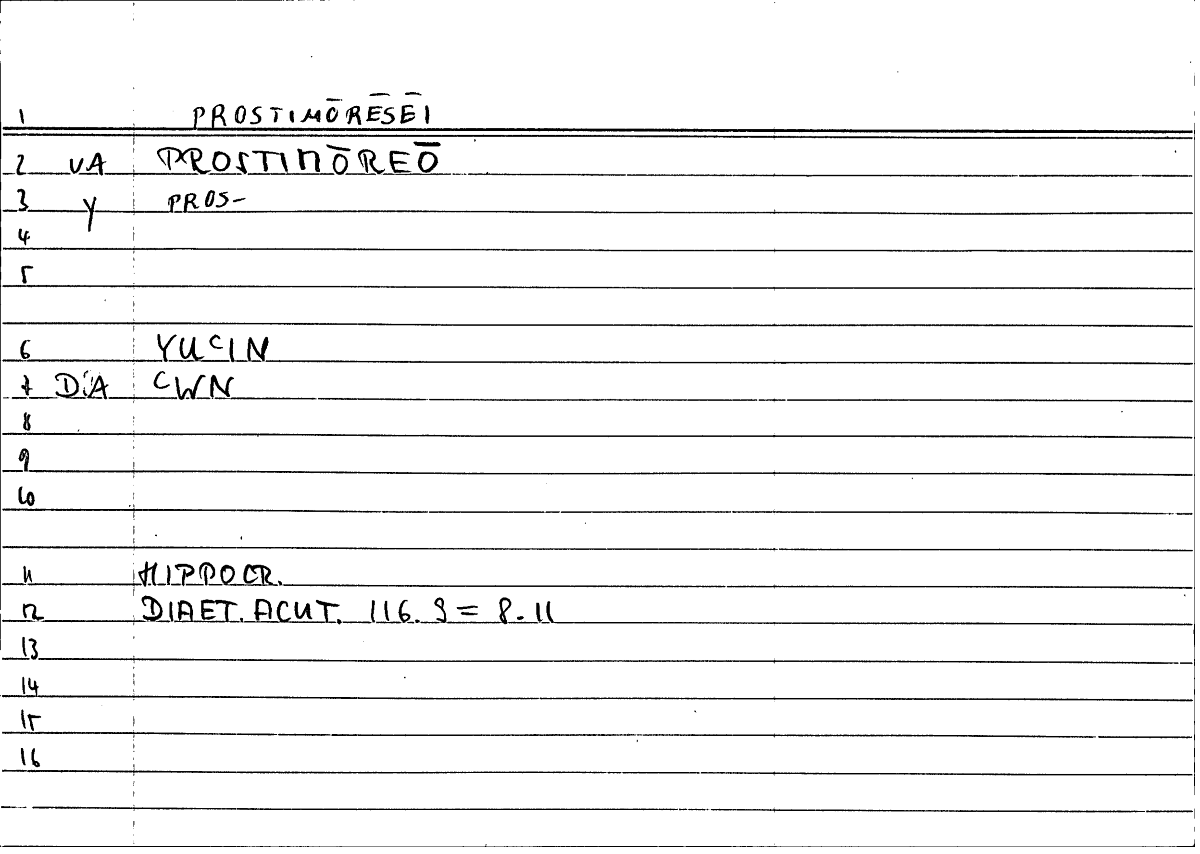 1 PROSTIMŌRĒSĒI
2 VA PROSTIMŌREŌ
3 Y PROS-
4
5
6 YUCIN
7 DIA CWN
8
9
10
11 HIPPOCR.
12 DIAET. ACUT. 116. 9 = 8-11
13
14
15
16